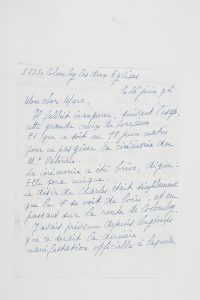 52330 Colombey les deux Eglises
le 26 juin 72
Mon cher Marc,
Il fallait inaugurer, suivant l'usage,
cette grande croix de Lorraine.
Et que ce soit un 18 juin matin
pour ne pas gêner la cérémonie du
Mt Valérien.
La cérémonie a été brève, digne.
Elle sera unique.
Le désir de Charles était simplement
que la ‡ se voit de loin, et en
passant sur la route de Colombey.
J'avais prévenu depuis longtemps
que ce serait la dernière
manifestation officielle à laquelle